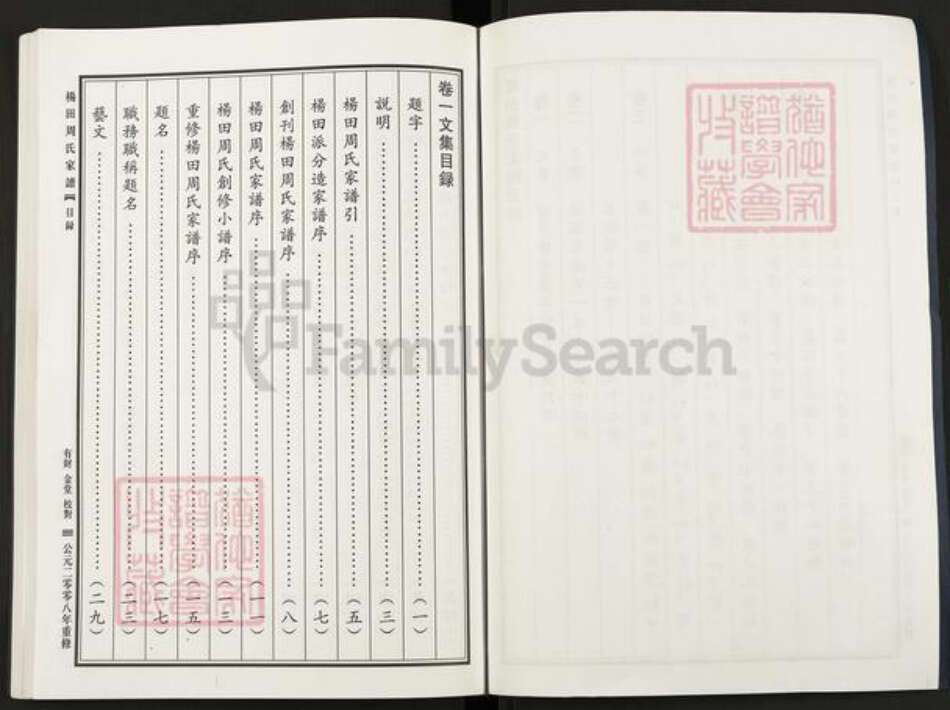 卷一文集目録
題字（一）
説明（三）
楊田周氏家譜引（五）
楊田派分造家譜序（七）
創刊楊田周氏家譜序（八）
楊田周氏家譜序（一一）
楊田周氏創修小譜序（一三）
重修楊田周氏家譜序（一五）
題名（一七）
職務職稱題名（二三）
藝文（二九）
楊田周氏家譜 目録
有財 金堂 校對 公元二零零八年重修
FamilySearch